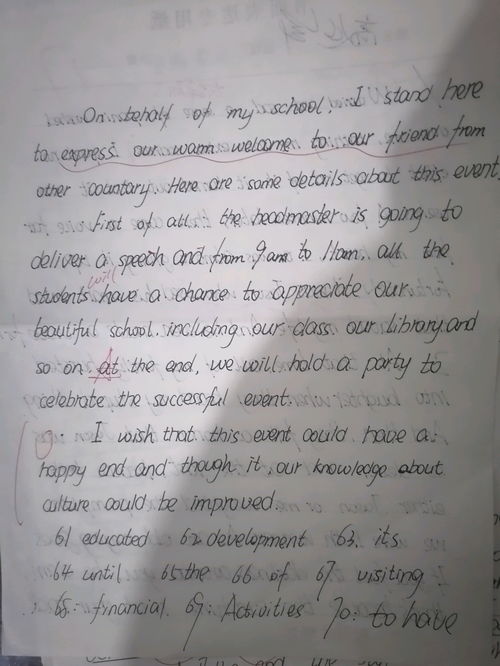 On behalf of my school, I stand here
to express our warm welcome to our friend from
other countary. Here are some details about this event.
First of all, the headmaster is going to
deliver a speech and from 9am to 11am, all the
will
students have a chance to appreciate our
beautiful school. including our class. our Library and
so on at the end, we will hold a party to
celebrate the successful event.
I wish that this event could have a
happy end and though it, our knowledge about
culture could be improved.
61 educated 62 development 63. its
64 until 65 the 66 of 67. visiting
68: financial. 69: Activities 70: to have